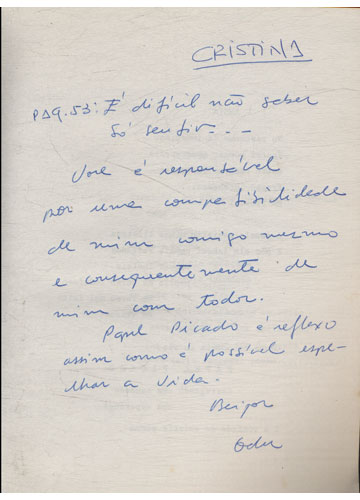 CRISTINA
PAG.53: É difícil não saber
só sentir...
Você é responsável
por uma compatibilidade
de mim comigo mesmo
e consequentemente de
mim com todos.
Papel Picado é reflexo
assim como é possível espe-
lhar a vida.
Beijos